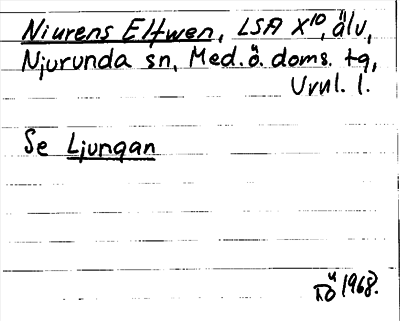 Niurens Elfwen, LSA X10, älv,
Njurunda sn, Med. ö. doms. tg,
Vnl. l.
Se Ljungan
1968.